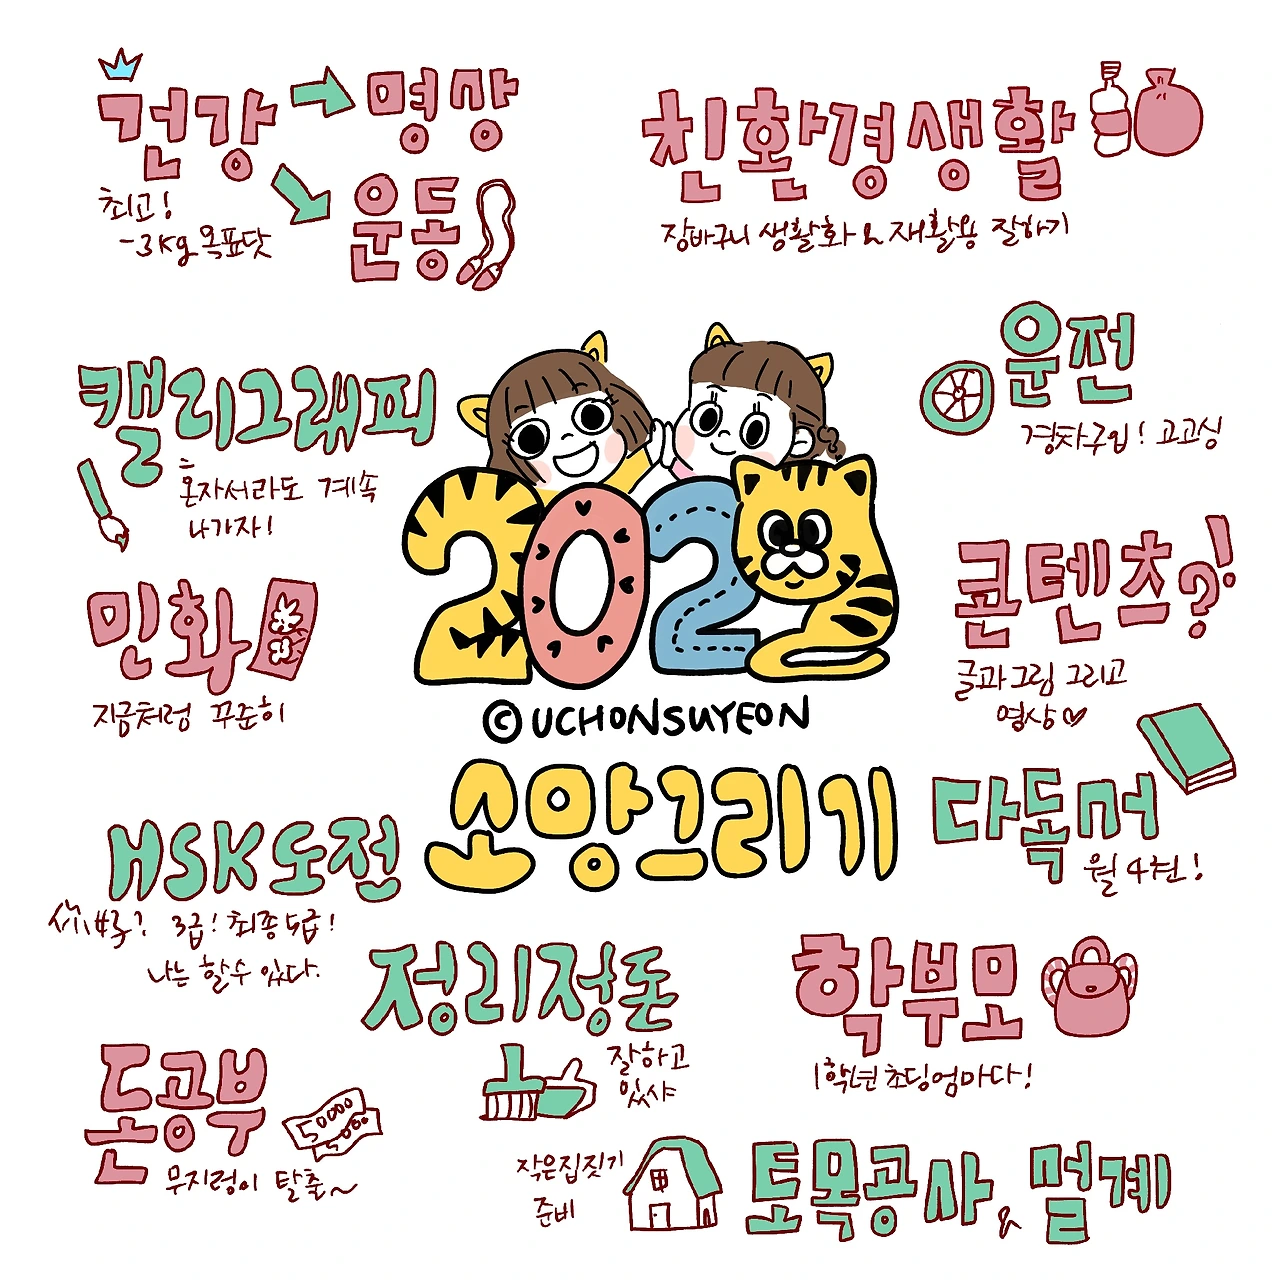 건강 명상
최고!
-3kg 목표닷
운동
친환경생활
장바구니 생활화 & 재활용 잘하기
운전
경차구입! 고고싱
캘리그래피
혼자서라도 계속
나가자!
2022
©UCHONSUYEON
소망그리기
민화
지금처럼 꾸준히
콘텐츠?!
글과그림 그리고
영상♡
다독머
월 4권!
HSK도전
3급! 최종 5급!
나는 할수 있다.
정리정돈
잘하고
있샤
학부모
1학년 초딩엄마다!
돈공부
무지렁이 탈출~
50000
5000
작은집짓기
준비
토목공사 & 멀계